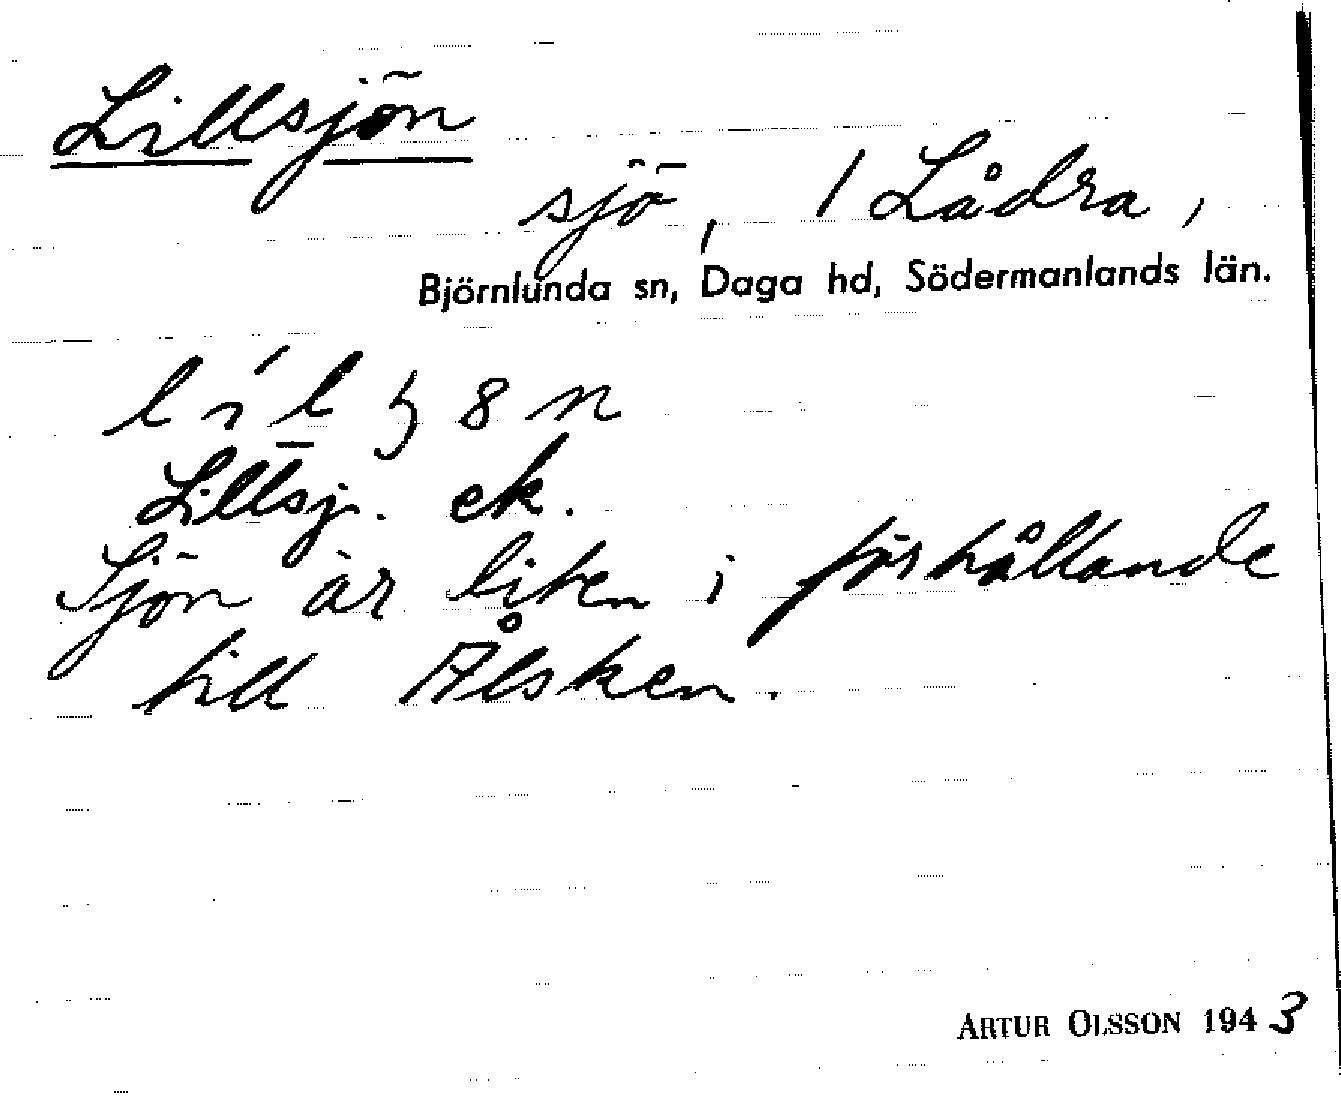 Lillsjön
sjö, / Lådra,
Björnlunda sn, Daga hd, Södermanlands län.
Lillsj. ek.
Sjön är liten i förhållande
till Ålsken.
ARTUR OLSSON 1943